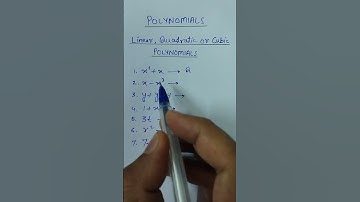 POLYNOMIALS
Linear, Quadratic or Cubic
POLYNOMIALS
1. x² + x → Q
2. x - x³ →
3. y + y
4. 1 + x
5. 3t
6. r²
7. 7